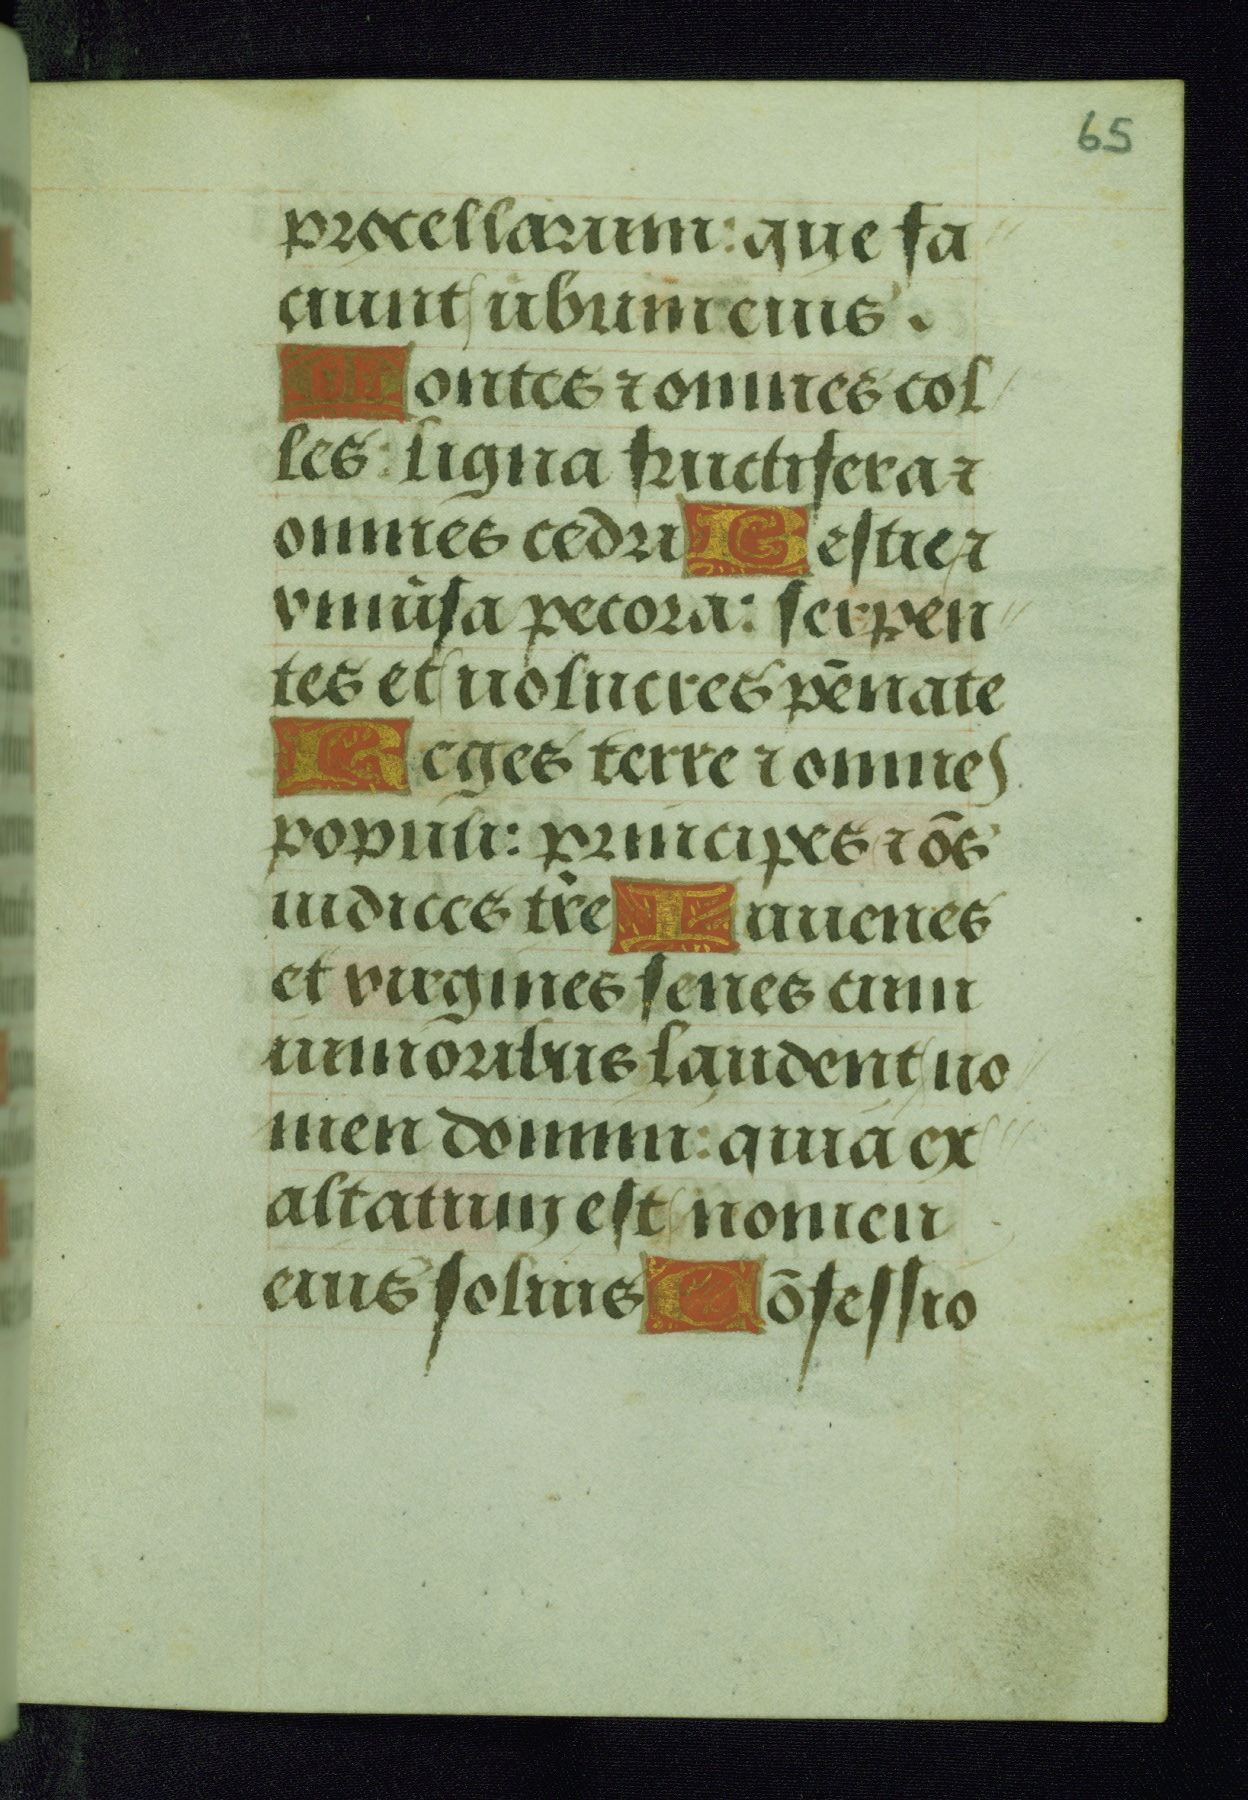 65
procellarum: que fa
ciunt uerbum eius.
Montes ⁊ omnes col
les: ligna fructifera ⁊
omnes cedri Bestie ⁊
vniũsa pecora: serpen
tes et uolucres pēnate
Reges terre ⁊ omnes
populi: principes ⁊ oēs
iudices tr̃e Iuuenes
et virgines senes cum
iunioribus laudent no
men domini: quia ex
altatum est nomen
eius solius Cōfessio